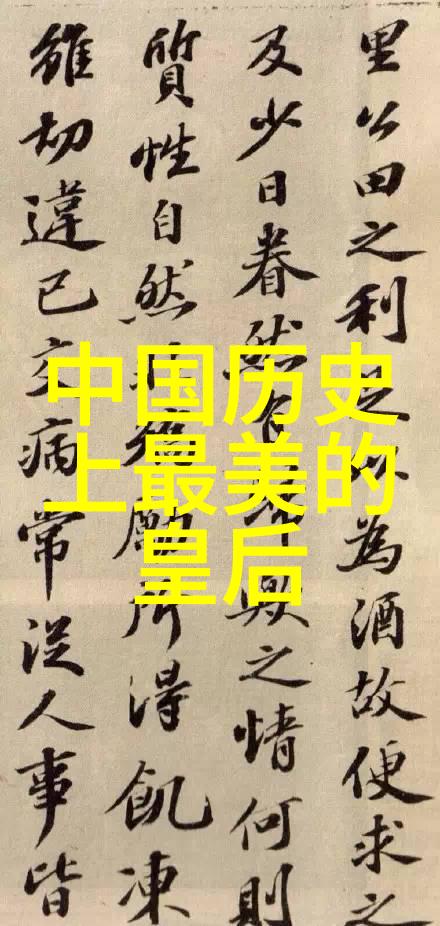 里公田之利足以為酒故便求之
及少日眷然有歟之情何則
質性自然矯勵所得飢凍
雖切違己交病常從人事皆
中国历史
上最美的
皇后